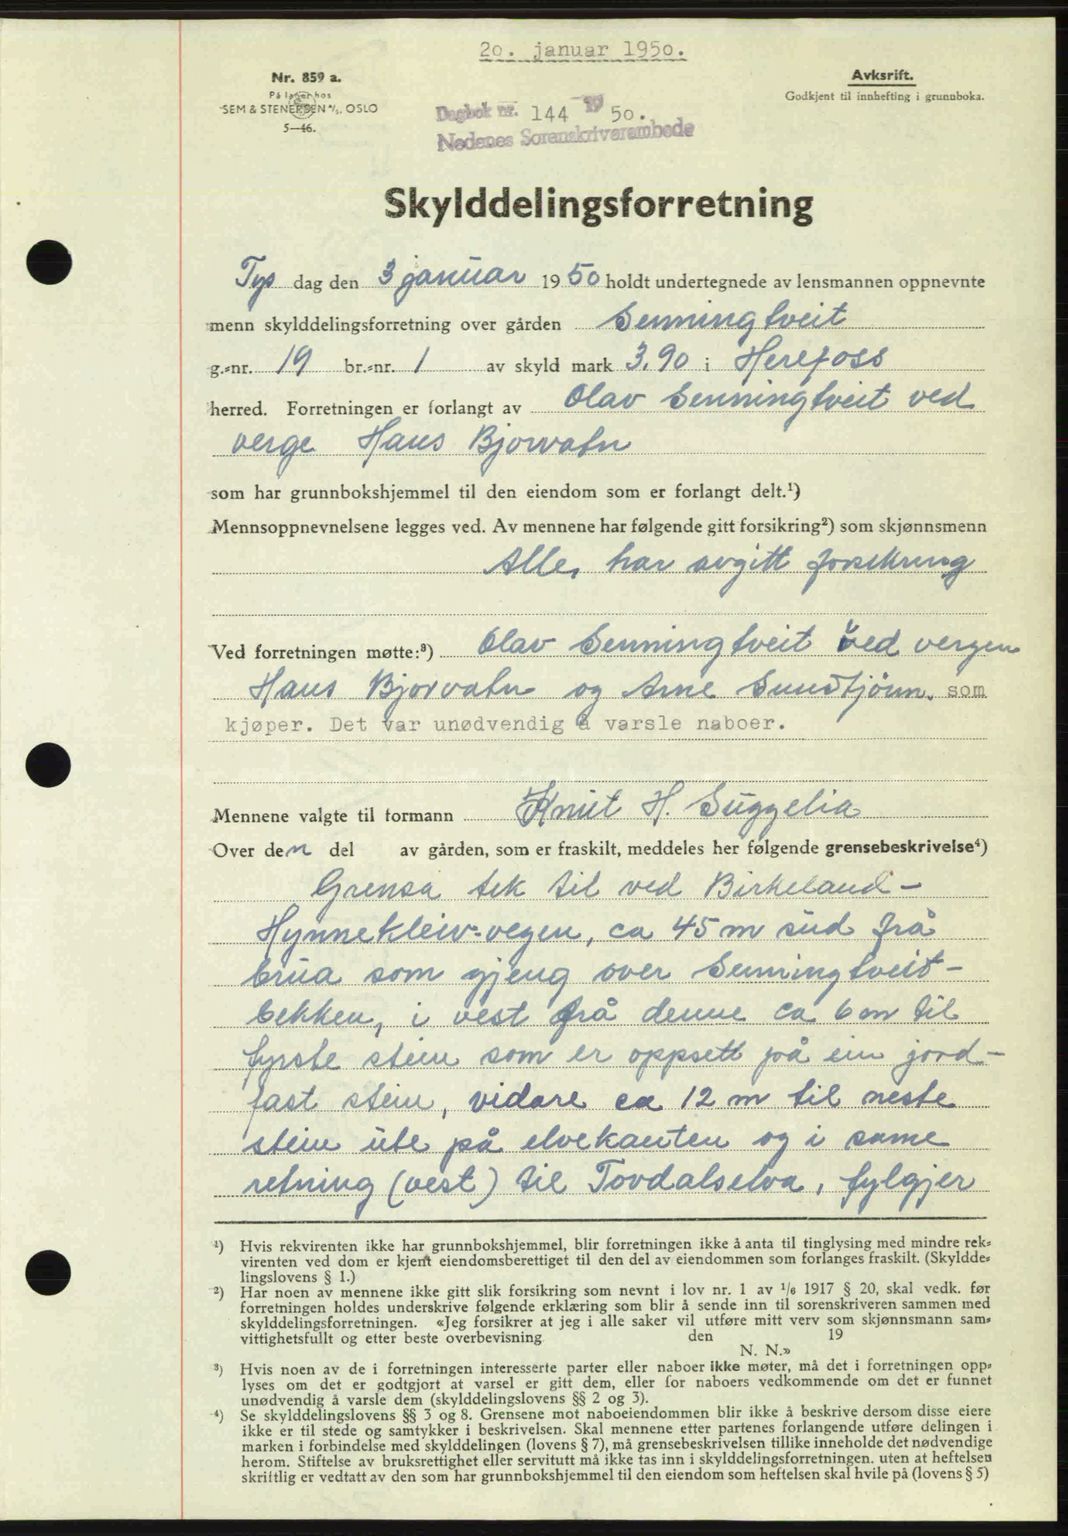 20. januar 1950.
Nr. 859 a.
På lager hos
SEM & STENERSEN A/S, OSLO
5—46.
Avksrift.
Godkjent til innhefting i grunnboka.
Dagbok nr. 144 19 50.
Nedenes Sorenskriverembede
Skylddelingsforretning
Tys dag den 3 januar 1950 holdt undertegnede av lensmannen oppnevnte
menn skylddelingsforretning over gården Senningtveit
g.-nr. 19 br.-nr. 1 av skyld mark 3.90 i Herefoss
herred. Forretningen er forlangt av Olav Senningtveit ved
verge Hans Bjorvatn
som har grunnbokshjemmel til den eiendom som er forlangt delt.¹)
Mennsoppnevnelsene legges ved. Av mennene har følgende gitt forsikring²) som skjønnsmenn
Alle, har avgitt forsikring
Ved forretningen møtte:³) Olav Senningtveit ved vergen
Hans Bjorvatn og Arne Sundtjönn. som
kjøper. Det var unødvendig å varsle naboer.
Mennene valgte til formann Knut H. Suggelia
Over den del av gården, som er fraskilt, meddeles her følgende grensebeskrivelse⁴)
Grensa tek til ved Birkeland-
Hynnekleiv-vegen, ca 45 m sud frå
brua som gjeng over Senningtveit-
bekken, i vest frå denne ca 6 m til
fyrste stein som er oppsett på ein jord-
fast stein, vidare ca 12 m til neste
stein ute på elvekanten og i same
retning (vest) til Tovdalselva, fylgjer
¹) Hvis rekvirenten ikke har grunnbokshjemmel, blir forretningen ikke å anta til tinglysing med mindre rek-
virenten ved dom er kjent eiendomsberettiget til den del av eiendommen som forlanges fraskilt. (Skyldde-
lingslovens § 1.)
²) Har noen av mennene ikke gitt slik forsikring som nevnt i lov nr. 1 av 1/6 1917 § 20, skal vedk. før
forretningen holdes underskrive følgende erklæring som blir å sende inn til sorenskriveren sammen med
skylddelingsforretningen. «Jeg forsikrer at jeg i alle saker vil utføre mitt verv som skjønnsmann sam-
vittighetsfullt og etter beste overbevisning den 19
N. N.»
³) Hvis noen av de i forretningen interesserte parter eller naboer ikke møter, må det i forretningen opp-
lyses om det er godtgjort at varsel er gitt dem, eller for naboers vedkommende om det er funnet
unødvendig å varsle dem (skylddelingslovens §§ 2 og 3).
⁴) Se skylddelingslovens §§ 3 og 8. Grensene mot naboeiendommen blir ikke å beskrive dersom disse eiere
ikke er til stede og samtykker i beskrivelsen. Skal mennene etter partenes forlangende utføre delingen i
marken i forbindelse med skylddelingen (lovens § 7), må grensebeskrivelsen tillike inneholde det nødvendige
herom. Stiftelse av bruksrettighet eller servitutt må ikke tas inn i skylddelingsforretningen. uten at heftelsen
skriftlig er vedtatt av den som har grunnbokshjemmel til den eiendom som heftelsen skal hvile på (lovens § 5)